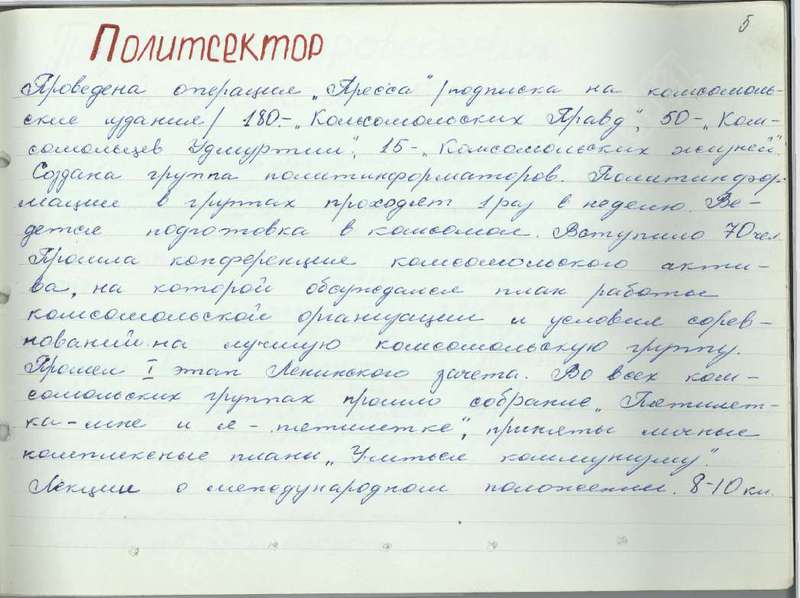 5
Политсектор
Проведена операция „Пресса" /подписка на комсомоль-
ские издания/ 180.- „Комсомольских Правд", 50- „Ком-
сомольцев Удмуртии", 15- „Комсомольских жизней".
Создана группа политинформаторов. Политинфор-
мации в группах проходят 1 раз в неделю. Ве-
дется подготовка в комсомол. Вступило 70 чел.
Прошла конференция комсомольского акти-
ва, на которой обсуждался план работы
комсомольской организации и условия сорев-
нований на лучшую комсомольскую группу.
Прошел I этап Ленинского зачета. Во всех ком-
сомольских группах прошло собрание „Пятилет-
ка - мне и я - пятилетке", приняты личные
комплексные планы „Учиться коммунизму".
Лекции о международном положении. 8-10 кл.